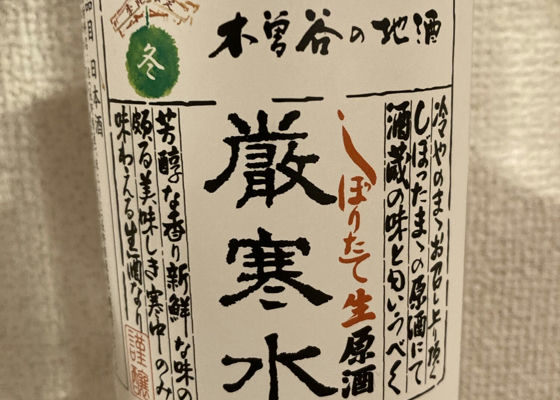 木曽谷の地酒
冬
品目 日本酒
冷やのまゝお召し上り頂く
しぼったまゝの原酒にて
酒蔵の味と匂いうべく
しぼりたて生原酒
厳寒水
芳醇な香り新鮮な味の
頗る美味しき寒中のみ
味わえる生酒なり
謹醸